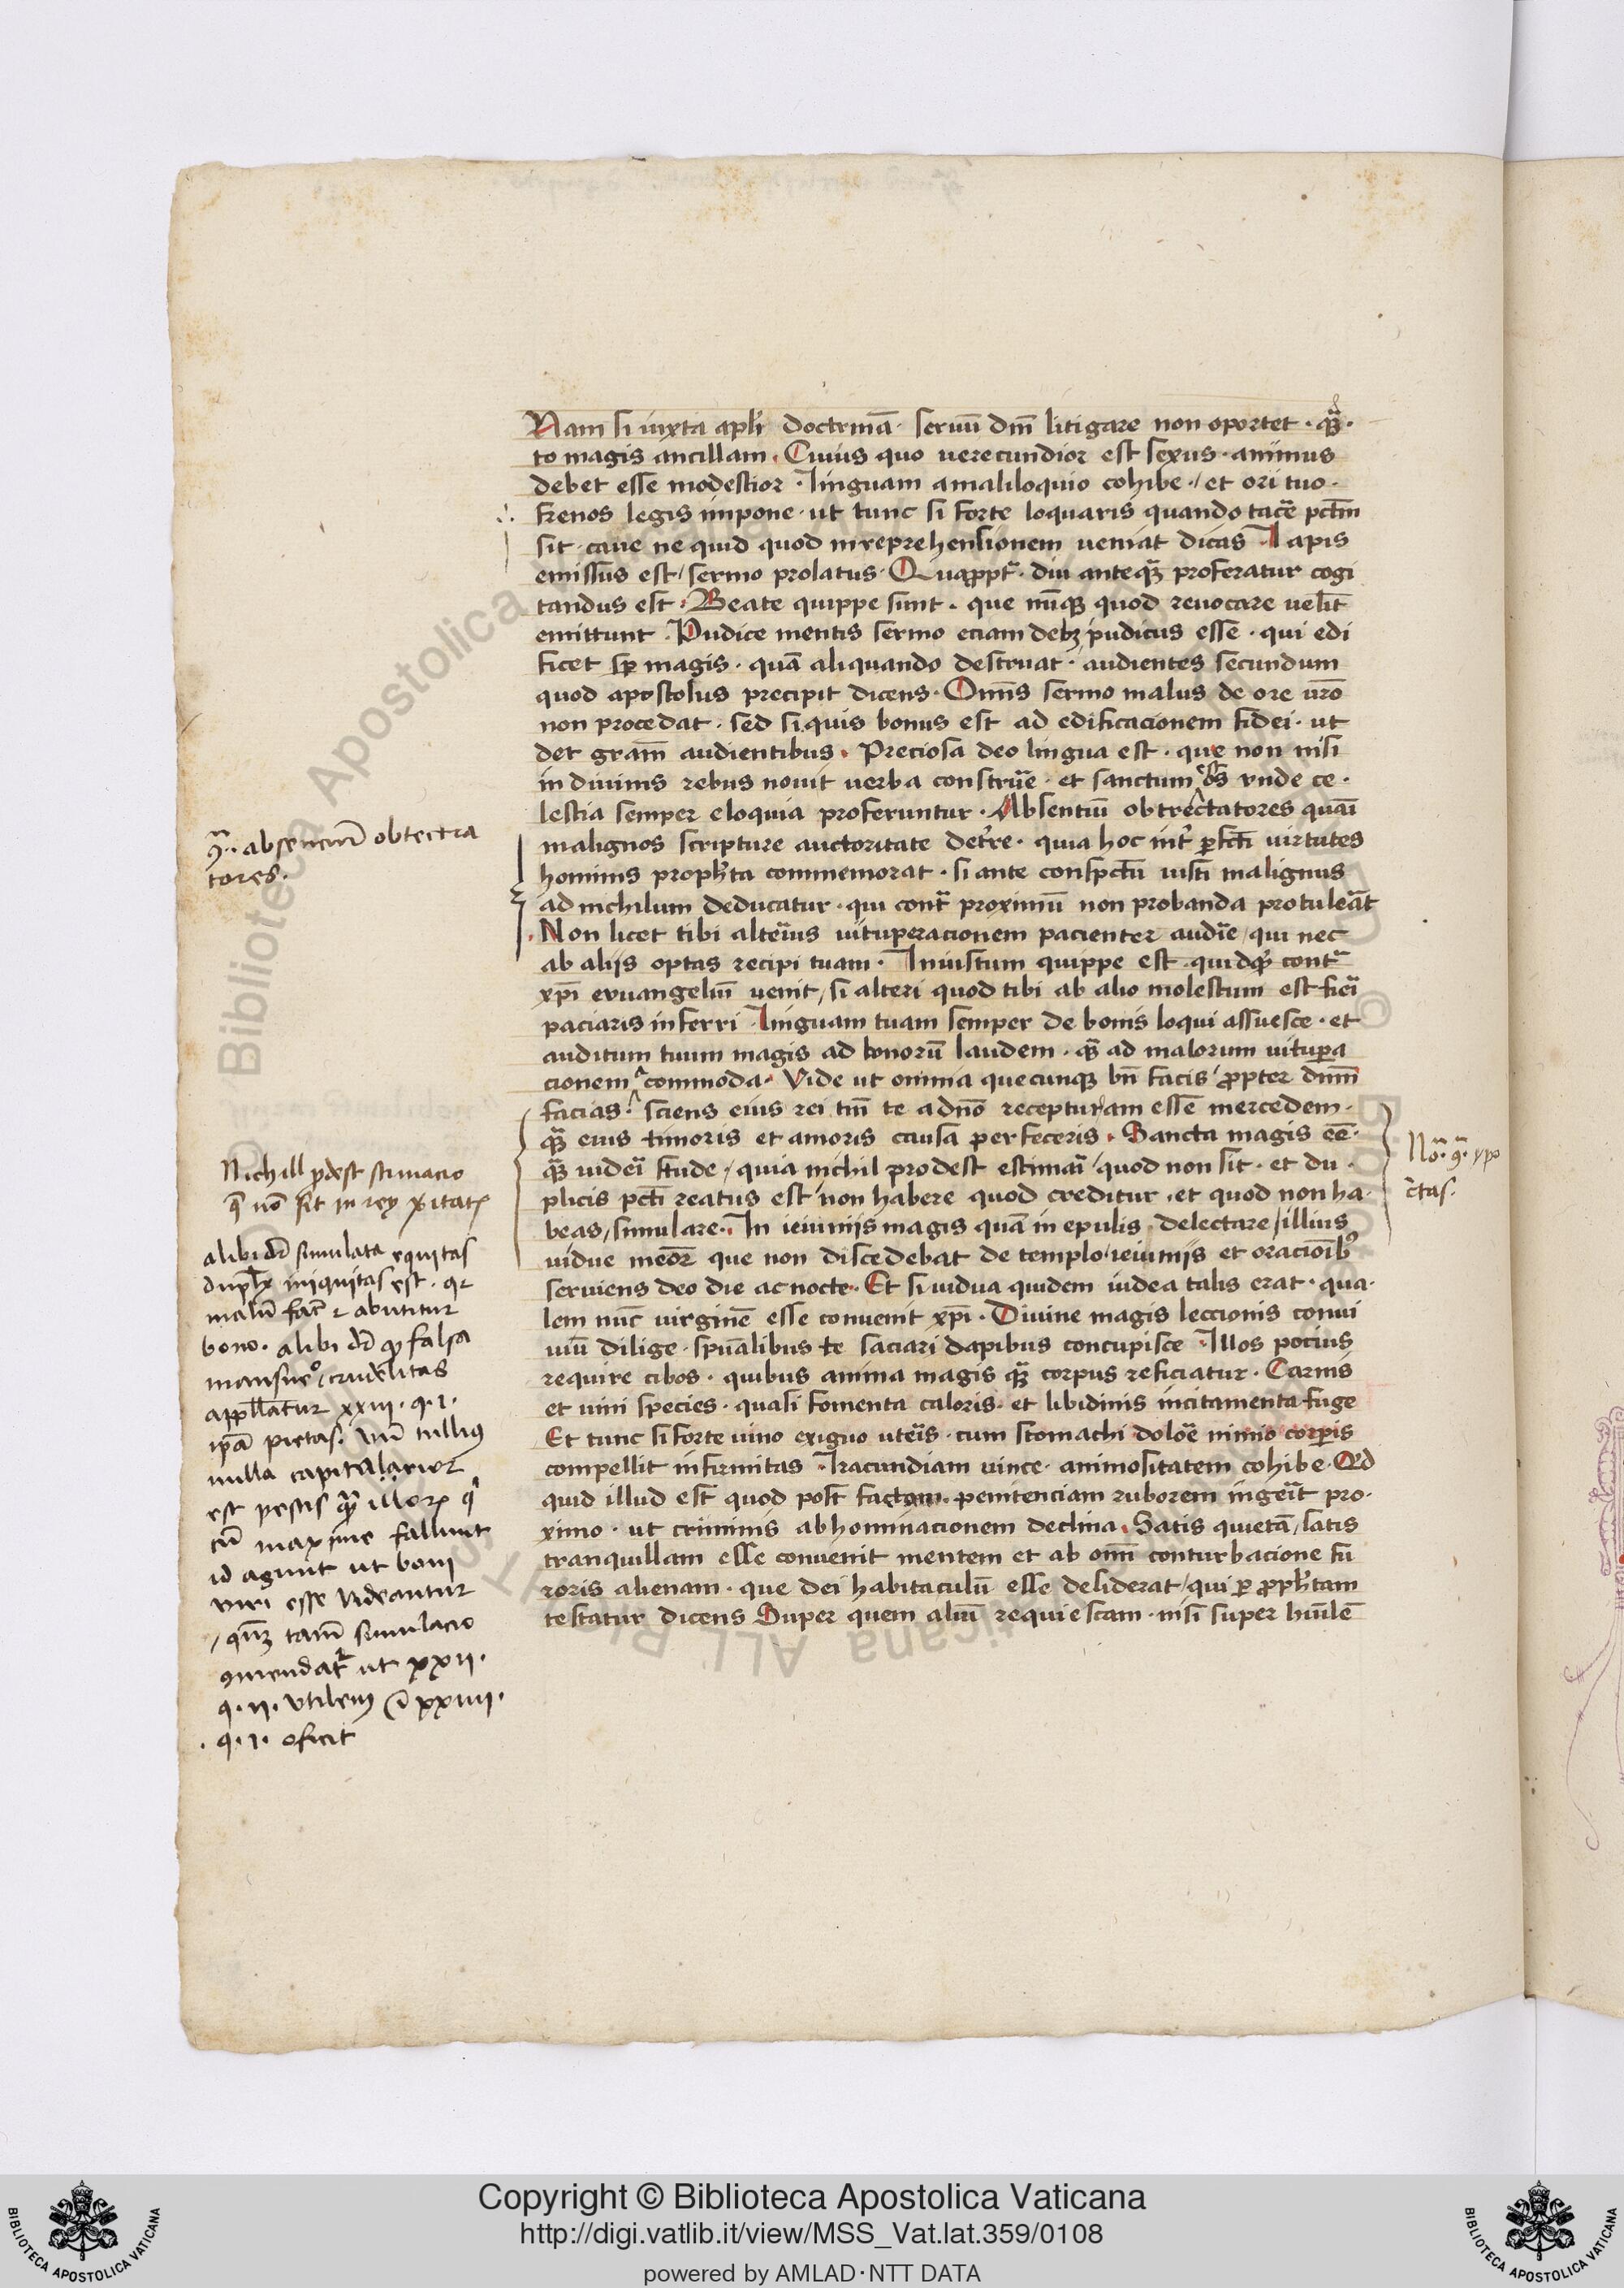 Nam si iuxta apłi doctrinā· seruū dm̄ litigare non oportet · quā·
to magis ancillam · Cuius quo uerecundior est sexus · animus
debet esse modestior · Linguam amaliloquio cohibe · / et ori tuo ·
frenos legis impone · ut tunc si forte loquaris quando tac̄e pctm̄
sit · caue ne quid quod inreprehensionem ueniat dicas Lapis
emissus est / sermo prolatus · Quappt̄ · diu anteq̄ proferatur cogi
tandus est · Beate quippe sunt · que nūq̄ quod reuocare uelīt
emittunt · Pudice mentis sermo eciam debꝫ pudicus esse · qui edi
ficet sp̄ magis · quā aliquando destruat · audientes secundum
quod apostolus precipit dicens · Omīs sermo malus de ore ur̄o
non procedat · sed si quis bonus est ad edificacionem fidei · ut
det gram̄ audientibus · Preciosa deo lingua est · que non nisi
in diuinis rebus nouit uerba construe᷑ · et sanctum est os vnde ce ·
lestia semper eloquia proferuntur · Absentiū obtrectatores quasi
malignos scripture auctoritate det̄re · quia hoc int̄ ꝑfcti virtutes
hominis proph̄ta commemorat · si ante conspectū iusti malignus
ad nichilum deducatur · qui cont̄ proximū non probanda protuleāt
Non licet tibi alteīus uituperacionem pacienter audīe / qui nec
ab aliis optas recipi tuam · Iniustum quippe est quidq̄ cont̄
xp̄i evuangeliū uenit / si alteri quod tibi ab alio molestum est fieī
paciaris inferri Linguam tuam semper de bonis loqui assuesce · et
auditum tuum magis ad bonorū laudem · q̄ ad malorum uituꝑa
cionem acommoda · Vide ut omnia quecunq̄ bn̄ facis / ꝓpter dnm̄
facias · sciens eius rei tm̄ te adn̄o recepturam esse mercedem ·
q̄ eius timoris et amoris causa perfeceris · Sancta magis eē ·
q̄ uideī stude / quia nichil prodest estimaī / quod non sit · et du ·
plicis pcti reatus est / non habere quod creditur · et quod non ha ·
beas / simulare · In ieiuniis magis quā in epulis delectare / illius
uidue meōr que non discedebat de templo / ieiuniis et oracioībꝰ
seruiens deo die ac nocte · Et si uidua quidem iudea talis erat · qua ·
lem nūc uirginē esse conuenit xp̄i · Diuine magis leccionis conui
uiū dilige · spūalibus te saciari dapibus concupisce · Illos pocius
require cibos · quibus anima magis q̄ corpus reficiatur · Carnis
et uini species · quasi fomenta caloris · et libidinis incitamenta fuge
Et tunc si forte uino exiguo uteīs · cum stomachi doloē nimio corꝑis
compellit infirmitas · Iracundiam uince · animositatem cohibe · Et
quid illud est quod post factam penitenciam ruborem ingeāt pro ·
ximo · ut criminis abhominacionem declina · Satis quietā / satis
tranquillam esse conuenit mentem et ab omī conturbacione fu
roris alienam · que dei habitaculū esse desiderat / qui ꝑ ꝓph̄tam
testatur dicens Super quem aliū requiescam · nisi super humlē
9ͣ · absenciū obtectra
tores ·
Nichill ꝓdest stimacio
q̄ nō sit in rey
alibi simulata equitas
duplx iniquitas est · qr
malū fac̄ et abutitur
bono · alibi falsa
crudelitas
appellatur xxiii · q · i ·
ip̄a pietas ·
nulla capitalarior
est pestis quā illorꝫ q
cū maxime fallunt
id agunt ut boni
viri esse videantur
/ qn̄ꝫ tam̄ simulacio
9mendatͬ ut xxii ·
q · ii · vtilem xxiiii ·
· q · i · oficit
Noͣ · 9ͣ · ypo
c̄tas ·
Copyright © Biblioteca Apostolica Vaticana
http://digi.vatlib.it/view/MSS_Vat.lat.359/0108
powered by AMLAD·NTT DATA
BIBLIOTECA APOSTOLICA VATICANA
BIBLIOTECA APOSTOLICA VATICANA